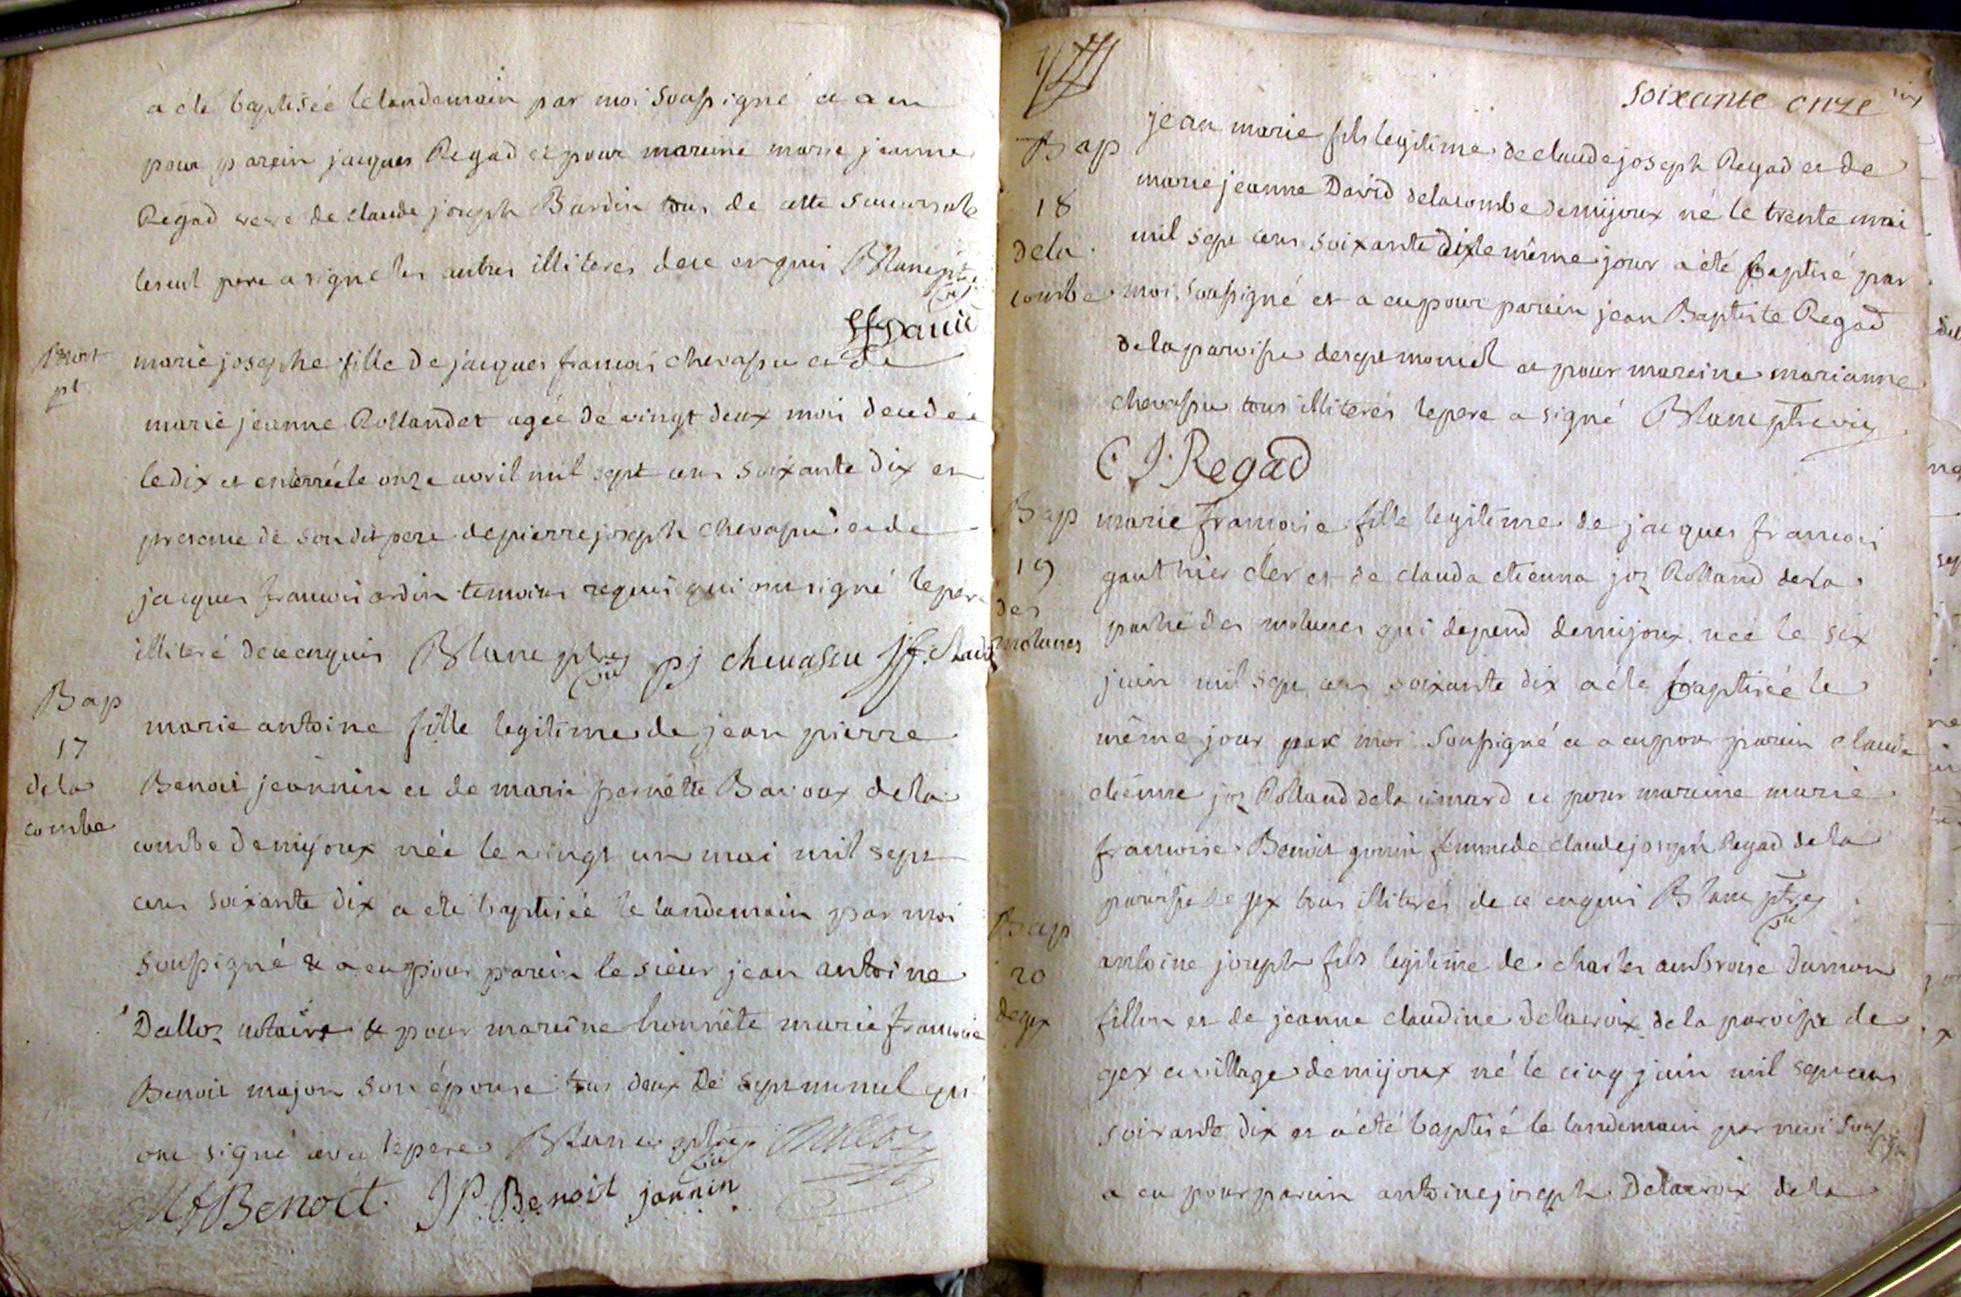 a été baptisée le landemain par moi soussigné et a eu
pour parein jacques Regad et pour mareine marie jeanne
Regad veve de claude joseph Bardin tous de cette sucursale
le seul pere a signé les autres illiteres de ce enquis Blanc ptre
vic
mort
pt
marie josephe fille de jacques francois chevassu et de
marie jeanne Rollandet agée de vingt deux mois decedée
le dix et enterrée le onze avril mil sept cens soixante dix en
presence de son dit pere de pierre joseph chevassu et de
jacques francois ardin temoins requis qui ont signé le pere
illiteré de ce enquis Blanc ptre vic pj chevassu
Bap
17
de la
combe
marie antoine fille legitime de jean pierre
Benoit jeannin et de marie pernette Bavoux de la
combe de mijoux née le vingt un mai mil sept
cens soixante dix a été baptisée le landemain par moi
soussigné & a eu pour parein le sieur jean antoine
Dalloz notaire & pour mareine honnête marie francoise
Benoit major son épouse tous deux de septmoncel qui
ont signé avec le pere Blanc ptre vic Dalloz
MF Benoit JP Benoit jannin
soixante onze
Bap
18
de la
combe
jean marie fils legitime de claude joseph Regad et de
marie jeanne David de la combe de mijoux né le trente mai
mil sept cens soixante dix le même jour a été baptisé par
moi soussigné et a eu pour parein jean Baptiste Regad
de la paroisse de septmoncel et pour mareine marianne
chevassu tous illiterés le pere a signé Blanc ptre vic
C. J. Regad
Bap
19
des
molunes
marie francoise fille legitime de jacques francois
gauthier cler et de clauda etienna joz Rolland de la
partie des molunes qui depend de mijoux née le six
juin mil sept cens soixante dix a été baptisée le
même jour par moi soussigné et a eu pour parein claude
etienne joz Rolland de la simard et pour mareine marie
francoise Benoit gonin femme de claude joseph Regad de la
paroisse de gex tous illiterés de ce enquis Blanc ptre
vic
Bap
20
de gex
antoine joseph fils legitime de charles ambroise dumon
fillon et de jeanne claudine delacroix de la paroisse de
gex et village de mijoux né le cinq juin mil sept cens
soixante dix et a été baptisé le landemain par moi soussigné
a eu pour parein antoine joseph Delacroix de la